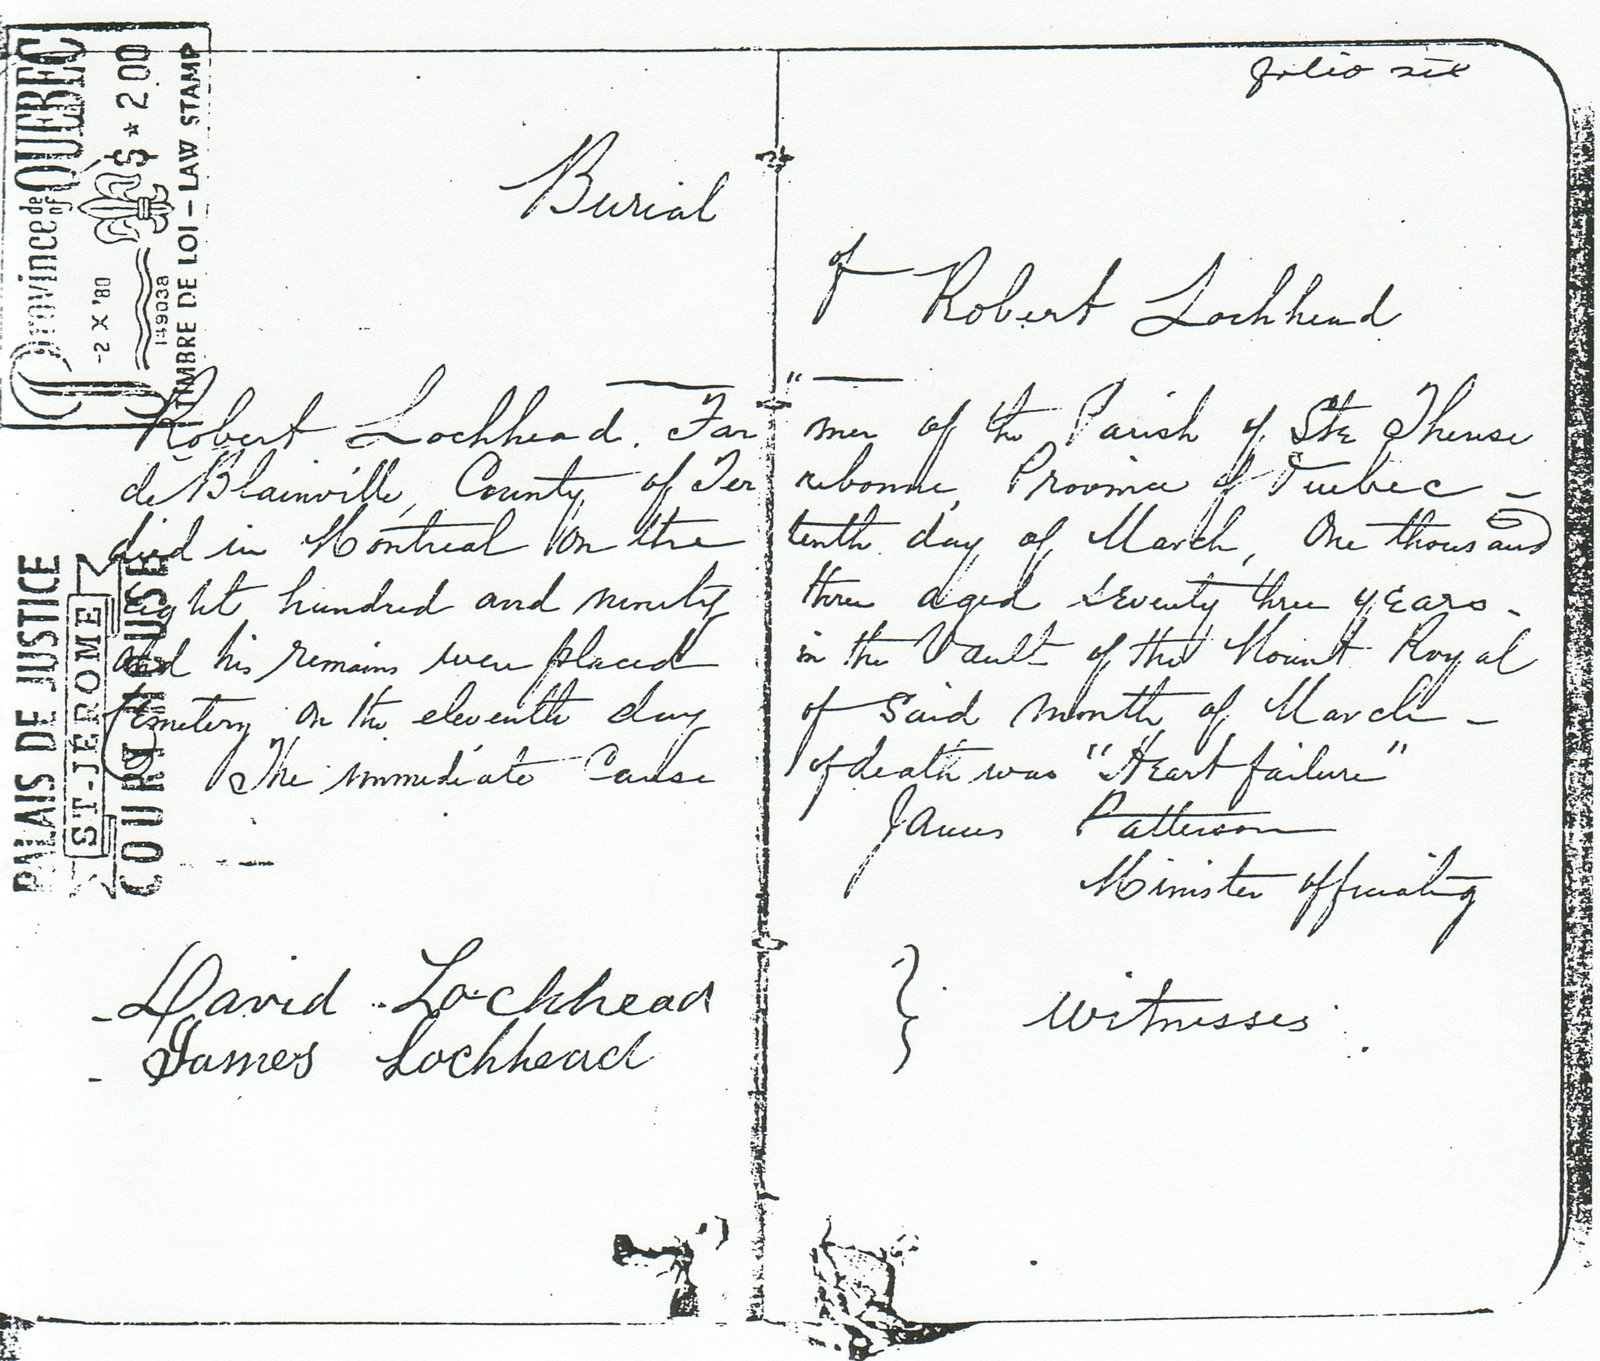 folio six
Burial
of Robert Lochhead
Robert Lochhead. Far " mer of the Parish of Ste Therese
de Blainville, County of Ter rebonne, Province of Quebec –
died in Montreal on the tenth day of March, One thousand
eight hundred and ninety three aged seventy three years –
and his remains were placed in the Vault of the Mount Royal
Cemetery on the eleventh day of said month of March –
The immediate Cause of death was "Heart failure"
James Patterson
Minister officiating
David Lochhead } Witnesses
James Lochhead
Province de of QUÉBEC
-2 X '80 $ * 2.00
149038
TIMBRE DE LOI – LAW STAMP
PALAIS DE JUSTICE
ST-JEROME
COURT HOUSE